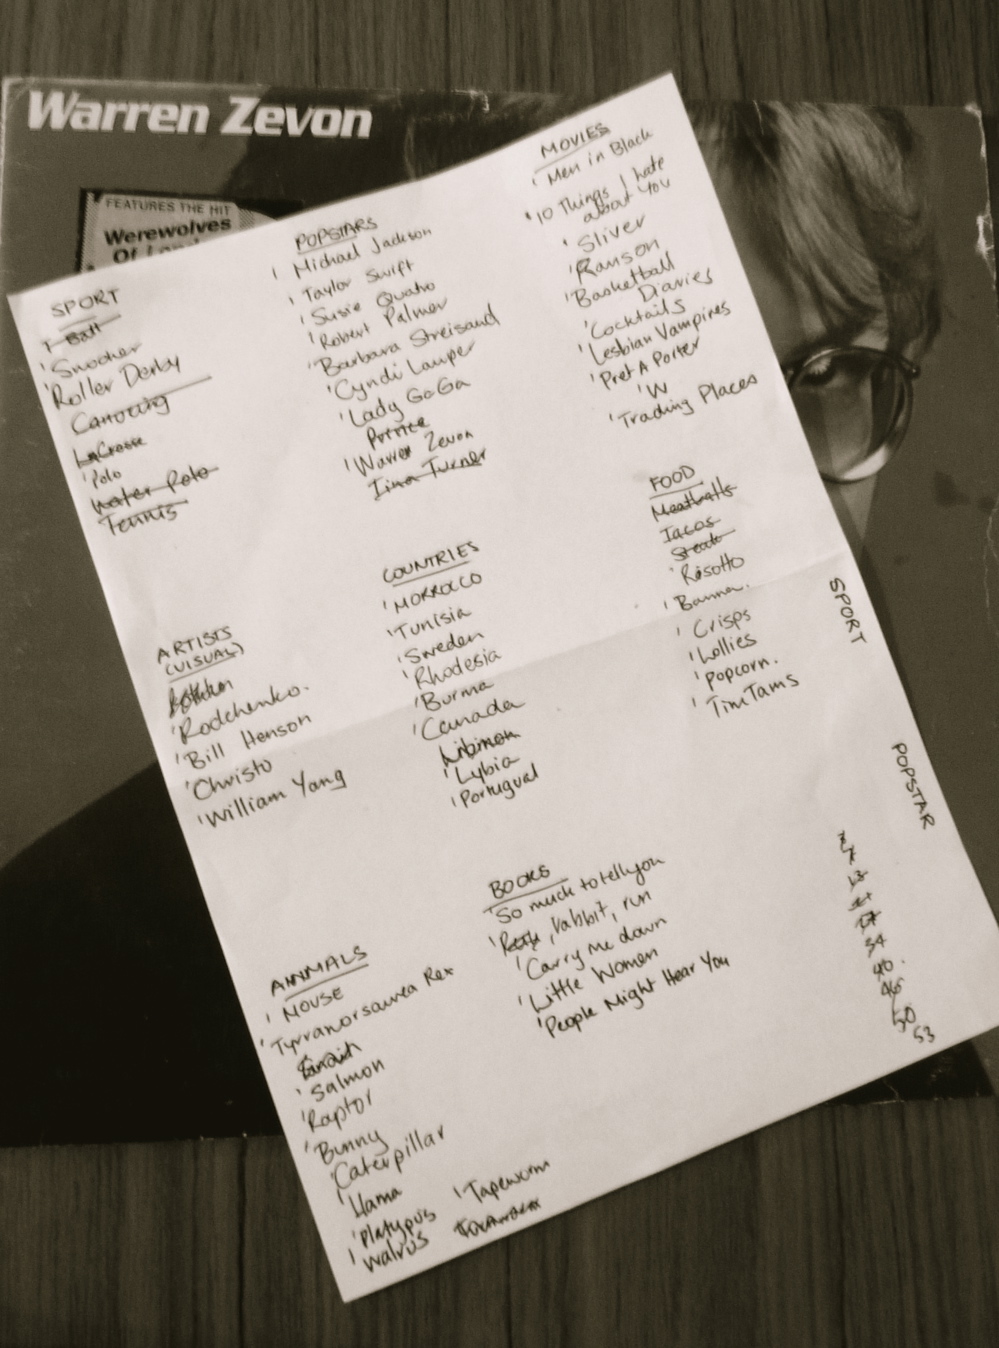 Warren Zevon
FEATURES THE HIT
Werewolves
SPORT
Ball
Snooker
Roller Derby
Canoeing
LaCrosse
Polo
Water Polo
Tennis
POPSTARS
Michael Jackson
Taylor Swift
Susie Quatro
Robert Palmer
Barbara Streisand
Cyndi Lauper
Lady GaGa
Prince
Warren Zevon
Tina Turner
MOVIES
Men in Black
10 Things I hate
about You
Sliver
Ranson
Basketball
Diaries
Cocktails
Lesbian Vampires
Pret A Porter
W
Trading Places
FOOD
Meatballs
Tacos
Steak
Risotto
Crisps
Lollies
Popcorn.
TimTams
COUNTRIES
MORROCO
Tunisia
Sweden
Rhodesia
Burma
Canada
Lybia
Portugual
ARTISTS
(VISUAL)
Rodchenko.
Bill Henson
Christo
William Yang
BOOKS
So much to tell you
, rabbit, run
Carry me down
Little Women
People Might Hear You
ANNMALS
MOUSE
Tyrranorsaurea Rex
Salmon
Raptor
Bunny
Caterpillar
Llama
Platypus
Walrus
Tapeworm
SPORT
POPSTAR
40.
46
50
53